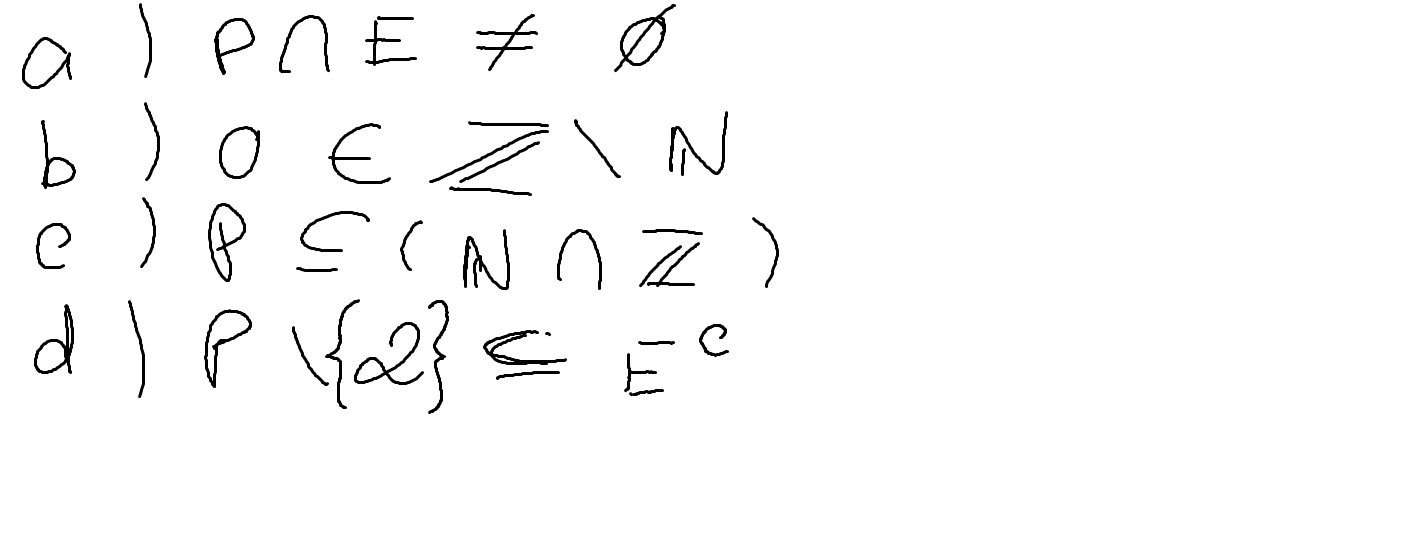 a) P ∩ E ≠ ∅
b) 0 ∈ ℤ \ ℕ
c) P ⊆ (ℕ ∩ ℤ)
d) P \ {2} ⊆ E^c